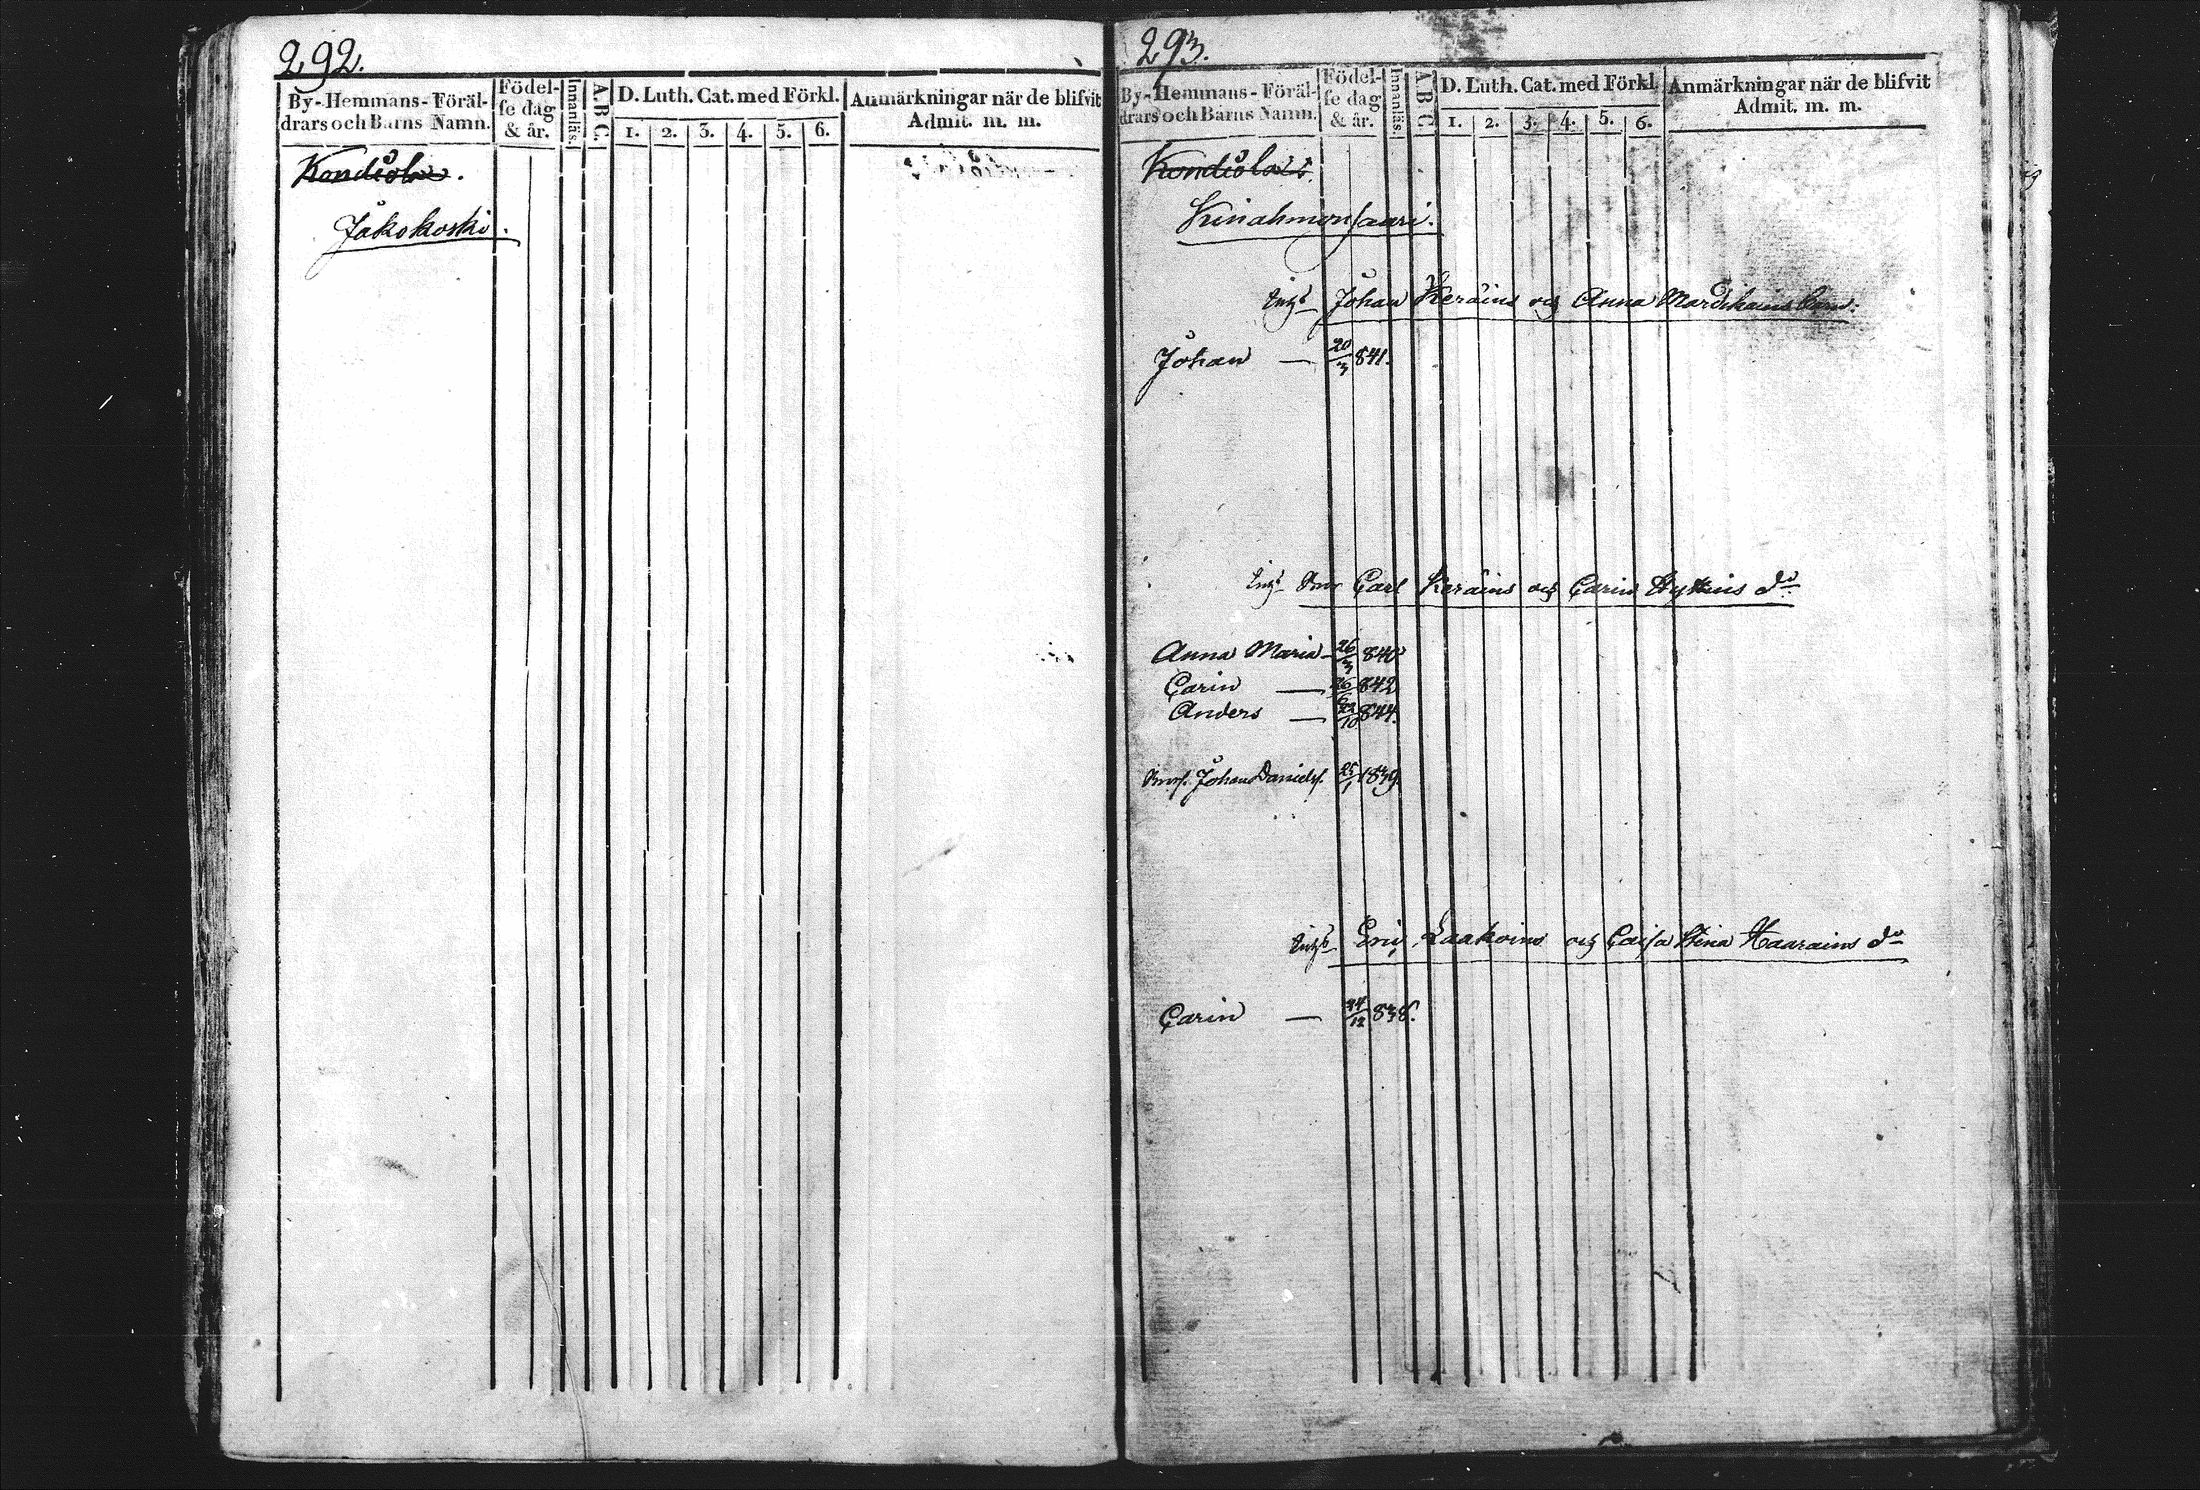 292.
By-Hemmans-Föräl-
drars och Barns Namn.
Födel-
se dag
& år.
Innanläs.
A.B.C.
D. Luth. Cat. med Förkl.
1. 2. 3. 4. 5. 6.
Anmärkningar när de blifvit
Admit. m. m.
Kondiola.
Jakokoski.
293.
By-Hemmans-Föräl-
drars och Barns Namn.
Födel-
se dag
& år.
Innanläs.
A B C
D. Luth. Cat. med Förkl.
1. 2. 3. 4. 5. 6.
Anmärkningar när de blifvit
Admit. m. m.
Kondiola
Kinahmonsaari.
Johan Keräins och Anna Mardikains Barn:
Johan — 20/3 841.
Carl Keräins och Carin Hyttins do
Anna Maria — 26/3 840
Carin — 26/6 842
Anders — 844.
Johan Daniels. 25/1 1839.
Eric Laakoins och Caisa Stina Haarains do
Carin — 24/12 838.